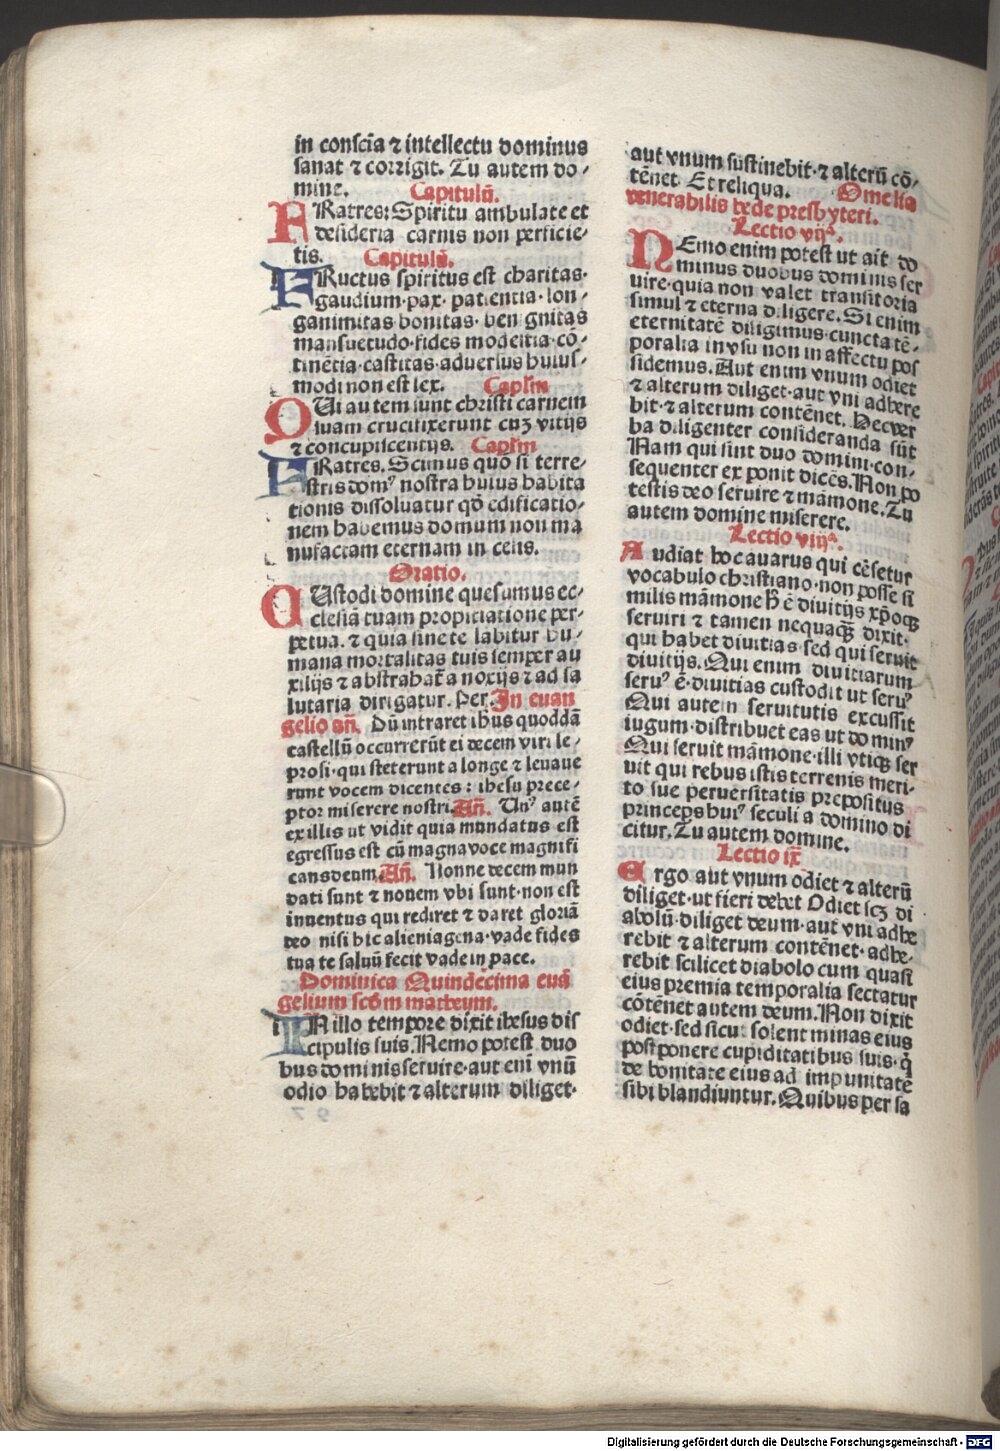 in conscīa ⁊ intellectu dominus
sanat ⁊ corrigit. Tu autem do⸗
mine. Capitulū.
FRatres: Spiritu ambulate et
desideria carnis non perficie⸗
tis. Capitulū.
FRuctus spiritus est charitas·
gaudium·pax·patientia·lon⸗
ganimitas bonitas·benignitas
mansuetudo·fides modestia·cō⸗
tinētia·castitas·aduersus huius⸗
modi non est lex. Caplm
QUi autem sunt christi carnem
suam crucifixerunt cuʒ vitijs
⁊ concupiscentijs. Caplm
FRatres. Scimus quō si terre⸗
stris domꝰ nostra huius habita
tionis dissoluatur qō edificatio⸗
nem habemus domum non ma
nufactam eternam in celis.
Oratio.
CUstodi domine quesumus ec⸗
clesiā tuam propiciatione per⸗
petua. ⁊ quia sine te labitur hu⸗
mana mortalitas tuis semper au
xilijs ⁊ abstrahat̄ a noxijs ⁊ ad sa
lutaria dirigatur. Per. In euan
gelio añ. Dū intraret ihūs quoddā
castellū occurrerūt ei decem viri le⸗
prosi·qui steterunt a longe ⁊ leuaue
runt vocem dicentes: ihesu prece⸗
ptor miserere nostri. Añ. Unꝰ autē
ex illis ut vidit quia mundatus est
egressus est cū magna voce magnifi
cans deum. Añ. Nonne decem mun
dati sunt ⁊ nouem vbi sunt·non est
inuentus qui rediret ⁊ daret gloriā
deo nisi hic alienigena·vade fides
tua te saluū fecit vade in pace.
Dominica Quindecima euā
gelium scōm matheum.
IN illo tempore dixit ihesus dis
cipulis suis. Nemo potest duo
bus dominis seruire·aut enī vnū
odio habebit ⁊ alterum diliget·
aut vnum sustinebit·⁊ alterū cō⸗
tēnet. Et reliqua. Omelia
venerabilis bede presbyteri.
Lectio vijᵃ.
NEmo enim potest ut ait do
minus duobus dominis ser
uire·quia non valet transitoria
simul ⁊ eterna diligere. Si enim
eternitatē diligimus·cuncta tē⸗
poralia in vsu non in affectu pos
sidemus. Aut enim vnum odiet
⁊ alterum diliget·aut vni adhere
bit·⁊ alterum contēnet. Hec ver
ba diligenter consideranda sūt
Nam qui sint duo domini·con⸗
sequenter exponit dicēs. Non po
testis deo seruire ⁊ māmone. Tu
autem domine miserere.
Lectio viijᵃ.
Audiat hoc auarus qui cēsetur
vocabulo christiano·non posse si
milis māmone h̄ ē diuitijs xp̄oqꝫ
seruiri ⁊ tamen nequaqꝫ dixit·
qui habet diuitias·sed qui seruit
diuitijs. Qui enim diuitiarum
seruꝰ ē·diuitias custodit ut seruꝰ
Qui autem seruitutis excussit
iugum·distribuet eas ut dominꝰ
Qui seruit māmone·illi vtiqꝫ ser
uit qui rebus istis terrenis meri⸗
to sue peruersitatis prepositus
princeps huiꝰ seculi a domino di
citur. Tu autem domine.
Lectio ix̄
Ergo aut vnum odiet ⁊ alterū
diliget·ut fieri debet Odiet scʒ di
abolū·diliget deum·aut vni adhe
rebit ⁊ alterum contēnet·adhe⸗
rebit scilicet diabolo cum quasi
eius premia temporalia sectatur
cōtēnet autem deum. Non dixit
odiet·sed sicut solent minas eius
postponere cupiditatibus suis·q̄
de bonitate eius ad impunitatē
sibi blandiuntur. Quibus per sa
Digitalisierung gefördert durch die Deutsche Forschungsgemeinschaft - DFG